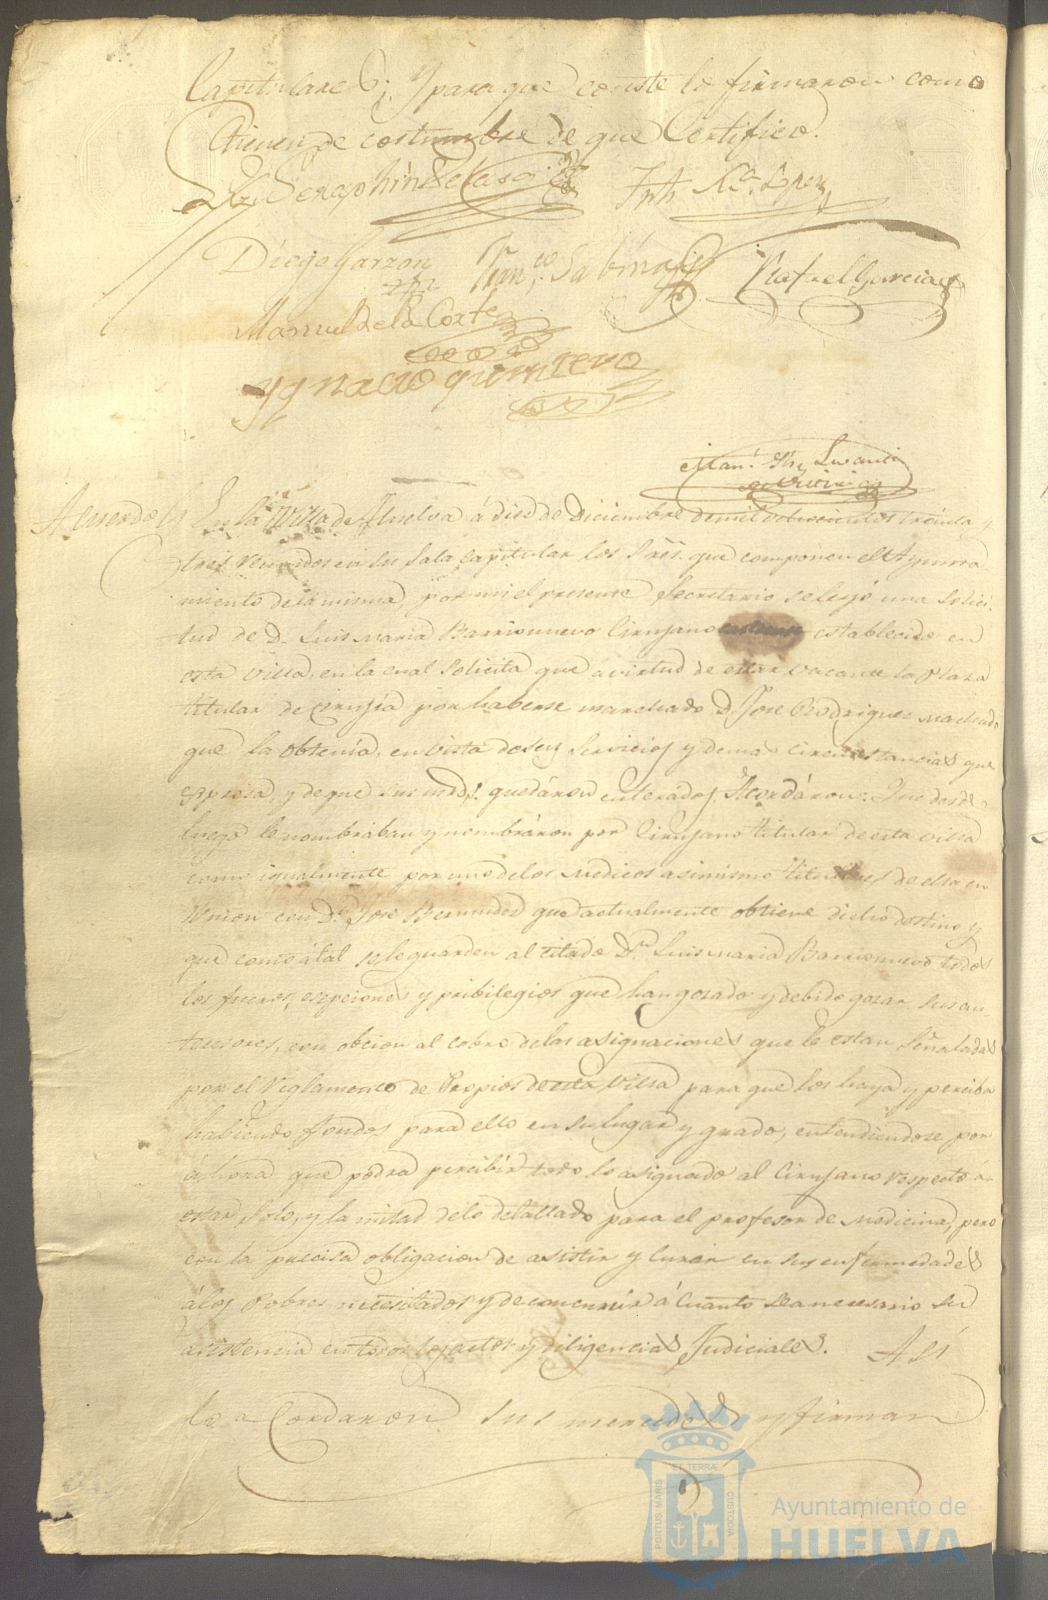 Capitulares; Y para que conste lo firmaron como
tienen de costumbre de que Certifico.
Seraphin
Lopez
Diego Garzon Fran.co Sabina Rafael Garcia
Manuel de la Corte
Ygnacio quintero
Man.l
Acuerdo En la Villa de Huelva á dies de Diciembre de mil ochocientos treinta y
tres reunidos en su Sala Capitular los Sres. que componen el Ayunta
miento de la misma, por mi el presente Secretario se leyó una Solici
tud de D. Luis Maria Barrionuevo Cirujano establecido en
esta Villa, en la cual Solicita que á virtud de estar vacante la Plaza
titular de Cirujia por haberse marchado D. Jose Rodriguez Machado
que la obtenia, en vista de sus Servicios y demas circunstancias que
espresa, y de que sus mds. quedáron enterados, Acordáron: Que desde
luego le nombraban y nombráron por Cirujano titular de esta Villa
como igualmente por uno de los Medicos asimismo titulares de ella en
Union con D.n Jose Bermudez que actualmente obtiene dicho destino y
que como á tal se le guarden al citado D.n Luis Maria Barrionuevo todos
los fueros, esepciones y pribilegios que han gozado y debido gozar sus an
tecesores, con obcion al cobro de las asignaciones que le estan Señaladas
por el Reglamento de Propios de esta Villa para que los haya y perciba
habiendo fondos para ello en su lugar y grado, entendiendose por
áhora que podrá percibir todo lo asignado al Cirujano respecto á
estar solo, y la mitad de lo detallado para el profesor de Medicina, pero
con la precisa obligacion de asistir y curar en sus enfermedades
á los Pobres necesitados y de concurrir á cuanto sea necesario su
asistencia en todos los actos y diligencias Judiciales. Asi
lo a Cordaron sus mercedes y firman
ET TERRÆ
PORTUS MARIS
CUSTODIA
Ayuntamiento de
HUELVA